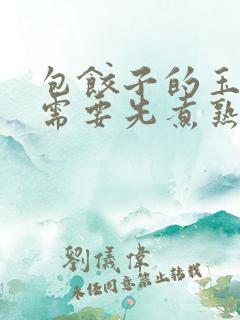 包餃子的玉
需要先煮熟
劉儀偉
未經同意禁止轉載